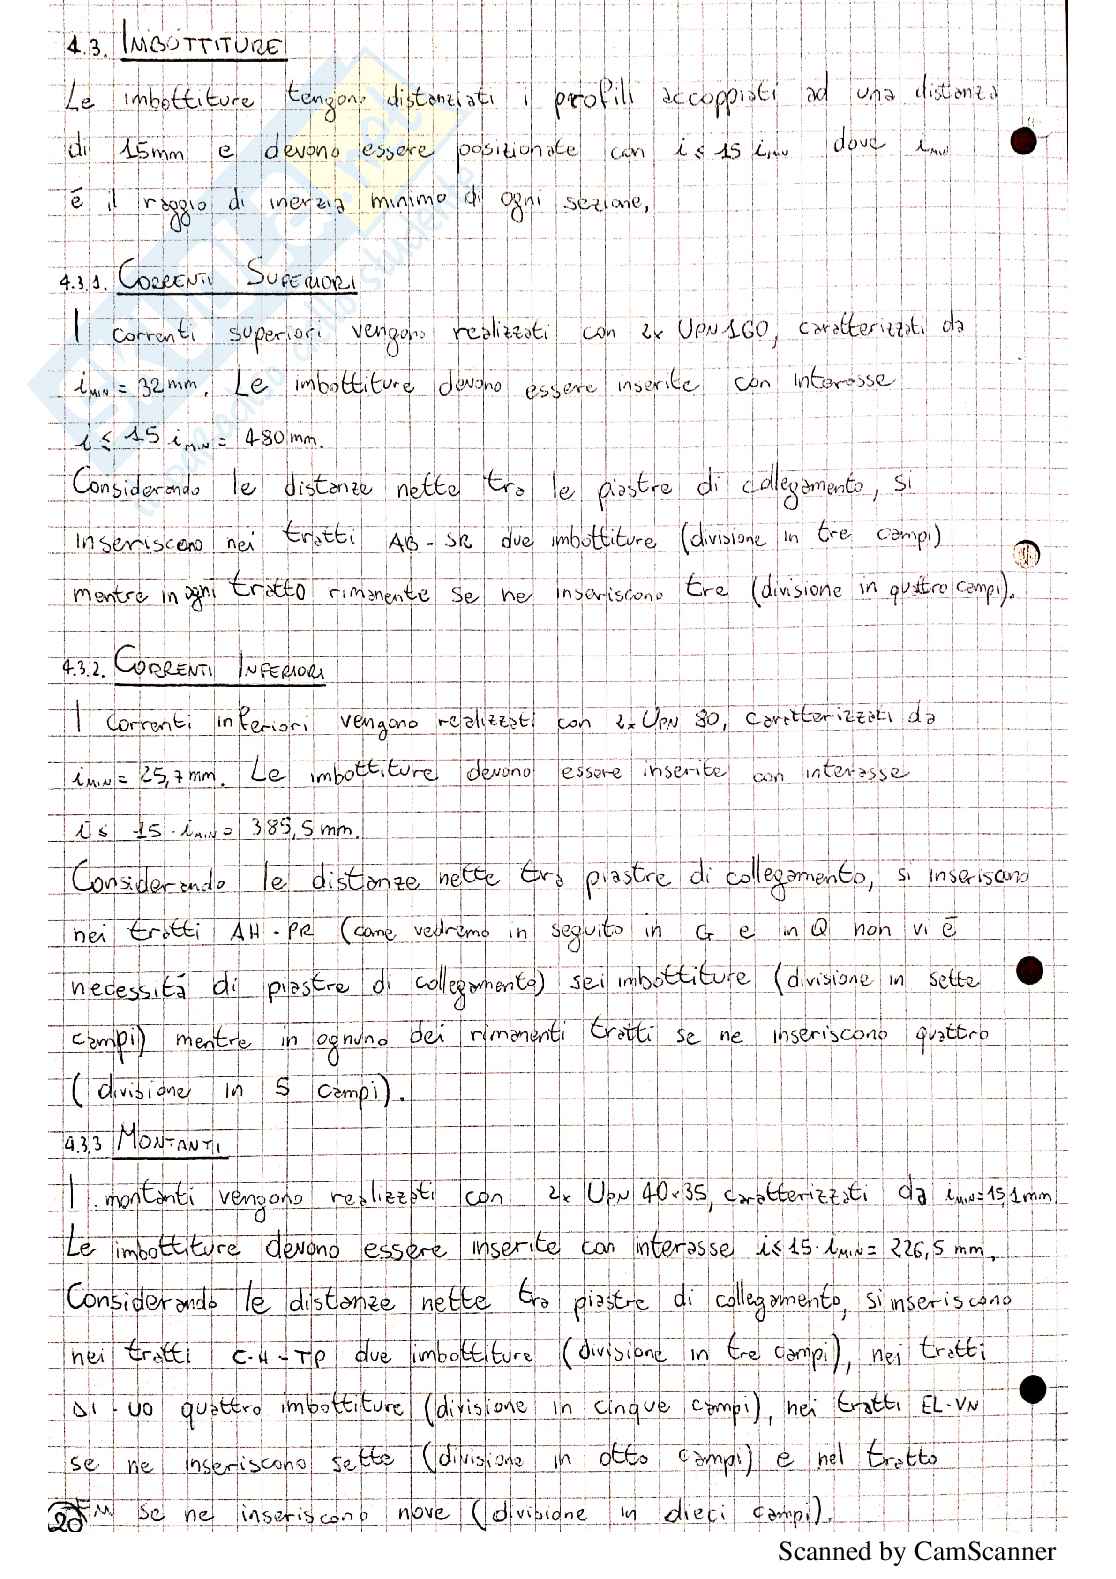 4.3. IMBOTTITURE
Le imbottiture tengono distanziati i profili accoppiati ad una distanza
di 15mm e devono essere posizionate con i ≤ 15 i_MIN dove i_MIN
è il raggio di inerzia minimo di ogni sezione.
4.3.1. CORRENTI SUPERIORI
I correnti superiori vengono realizzati con 2x UPN160, caratterizzati da
i_MIN = 32mm. Le imbottiture devono essere inserite con interasse
i ≤ 15 i_MIN = 480mm.
Considerando le distanze nette tra le piastre di collegamento, si
inseriscono nei tratti AB - SR due imbottiture (divisione in tre campi)
mentre in ogni tratto rimanente se ne inseriscono tre (divisione in quattro campi).
4.3.2. CORRENTI INFERIORI
I correnti inferiori vengono realizzati con 2x UPN 80, caratterizzati da
i_MIN = 25,7mm. Le imbottiture devono essere inserite con interasse
i ≤ 15 · i_MIN = 385,5mm.
Considerando le distanze nette tra piastre di collegamento, si inseriscono
nei tratti AH - PR (come vedremo in seguito in G e in Q non vi è
necessità di piastre di collegamento) sei imbottiture (divisione in sette
campi) mentre in ognuno dei rimanenti tratti se ne inseriscono quattro
(divisione in 5 campi).
4.3.3 MONTANTI
I montanti vengono realizzati con 2x UPN 40x35, caratterizzati da i_MIN=15,1mm
Le imbottiture devono essere inserite con interasse i ≤ 15 · i_MIN = 226,5 mm.
Considerando le distanze nette tra piastre di collegamento, si inseriscono
nei tratti C-H - TP due imbottiture (divisione in tre campi), nei tratti
DI - UO quattro imbottiture (divisione in cinque campi), nei tratti EL-VN
se ne inseriscono sette (divisione in otto campi) e nel tratto
FM se ne inseriscono nove (divisione in dieci campi).
20
Scanned by CamScanner